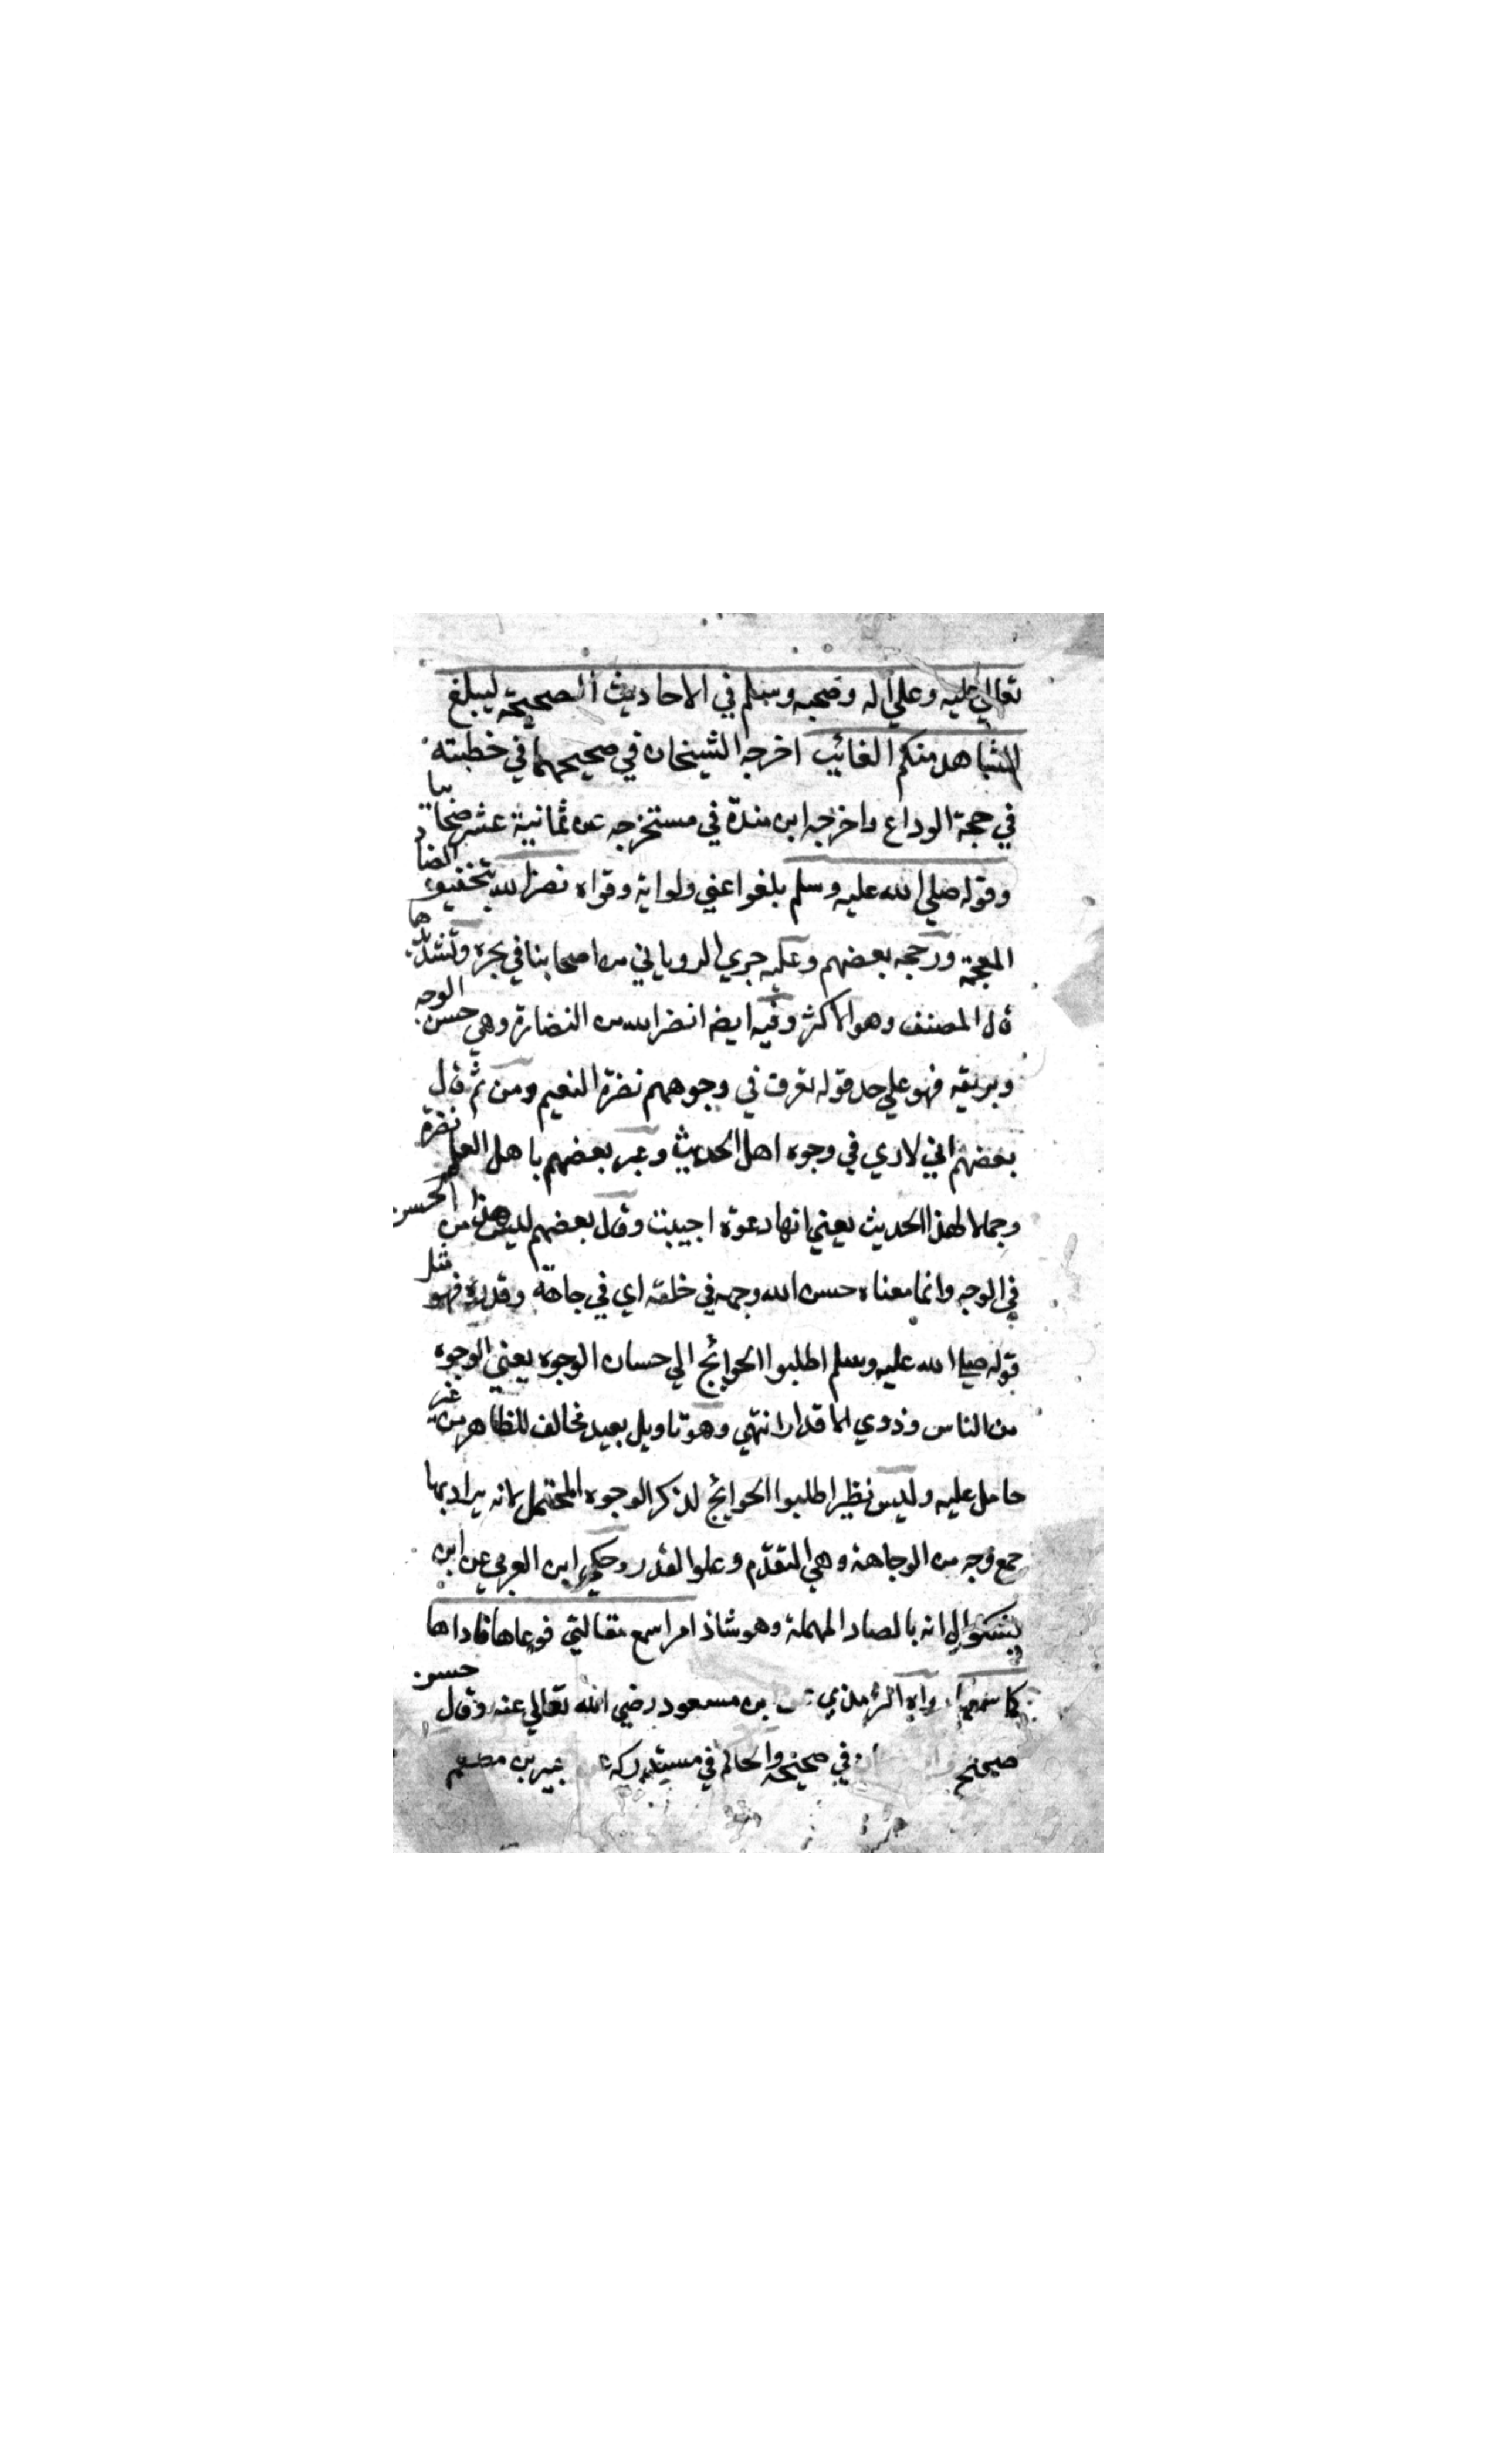 تعالي عليه وعلي اله وصحبه وسلم في الاحاديث الصحيحة ليبلغ
الشاهد منكم الغائب اخرجه الشيخان في صحيحهما في خطبته
في حجة الوداع واخرجه ابن مندة في مستخرجه عن ثمانية عشر ضحابيا
وقوله صلي الله عليه وسلم بلغوا عني ولواية وقوله نضر الله بتخفيف الضاد
المعجمة ورجحه بعضهم وعليه جري الروياني من اصحابنا في بحره وتشديدها
قال المصنف وهو الاكثر وفيه ايضا انضر الله من النضارة وهي حسن الوجه
وبريقه فهو علي حد قوله تعرف في وجوههم نضرة النعيم ومن ثم قال
بعضهم اني لاري في وجوه اهل الحديث وعبر بعضهم باهل العلم نضرة
وجمالا لهذا الحديث يعني انها دعوة اجيبت وقال بعضهم ليس هذا من الحسن
في الوجه وانما معناه حسن الله وجهه في خلقه اي في جاهه وقدره فهو مثل
قوله صلي الله عليه وسلم اطلبوا الحوائج الي حسان الوجوه يعني الوجوه
من الناس وذوي الاقدار انتهي وهو تاويل بعيد مخالف للظاهر من غير
حامل عليه وليس نظير اطلبوا الحوايج لذكر الوجوه المحتمل لانه يراد بها
جمع وجه من الوجاهة وهي التقدم وعلو القدر وحكي ابن العربي عن ابن
بشكوال انه بالصاد المهملة وهو شاذ امرا سمع مقالتي فوعاها فاداها
كما سمعها رواه الترمذي بن مسعود رضي الله تعالي عنه وقال حسن
صحيح في صحيحه والحاكم في مستدركه جبير بن مطعم